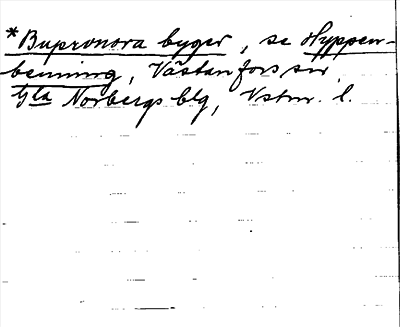 *Bupronora byger, se Hyppen-
benning, Västanfors sn,
Gla Norbergs blg, Vstm. l.